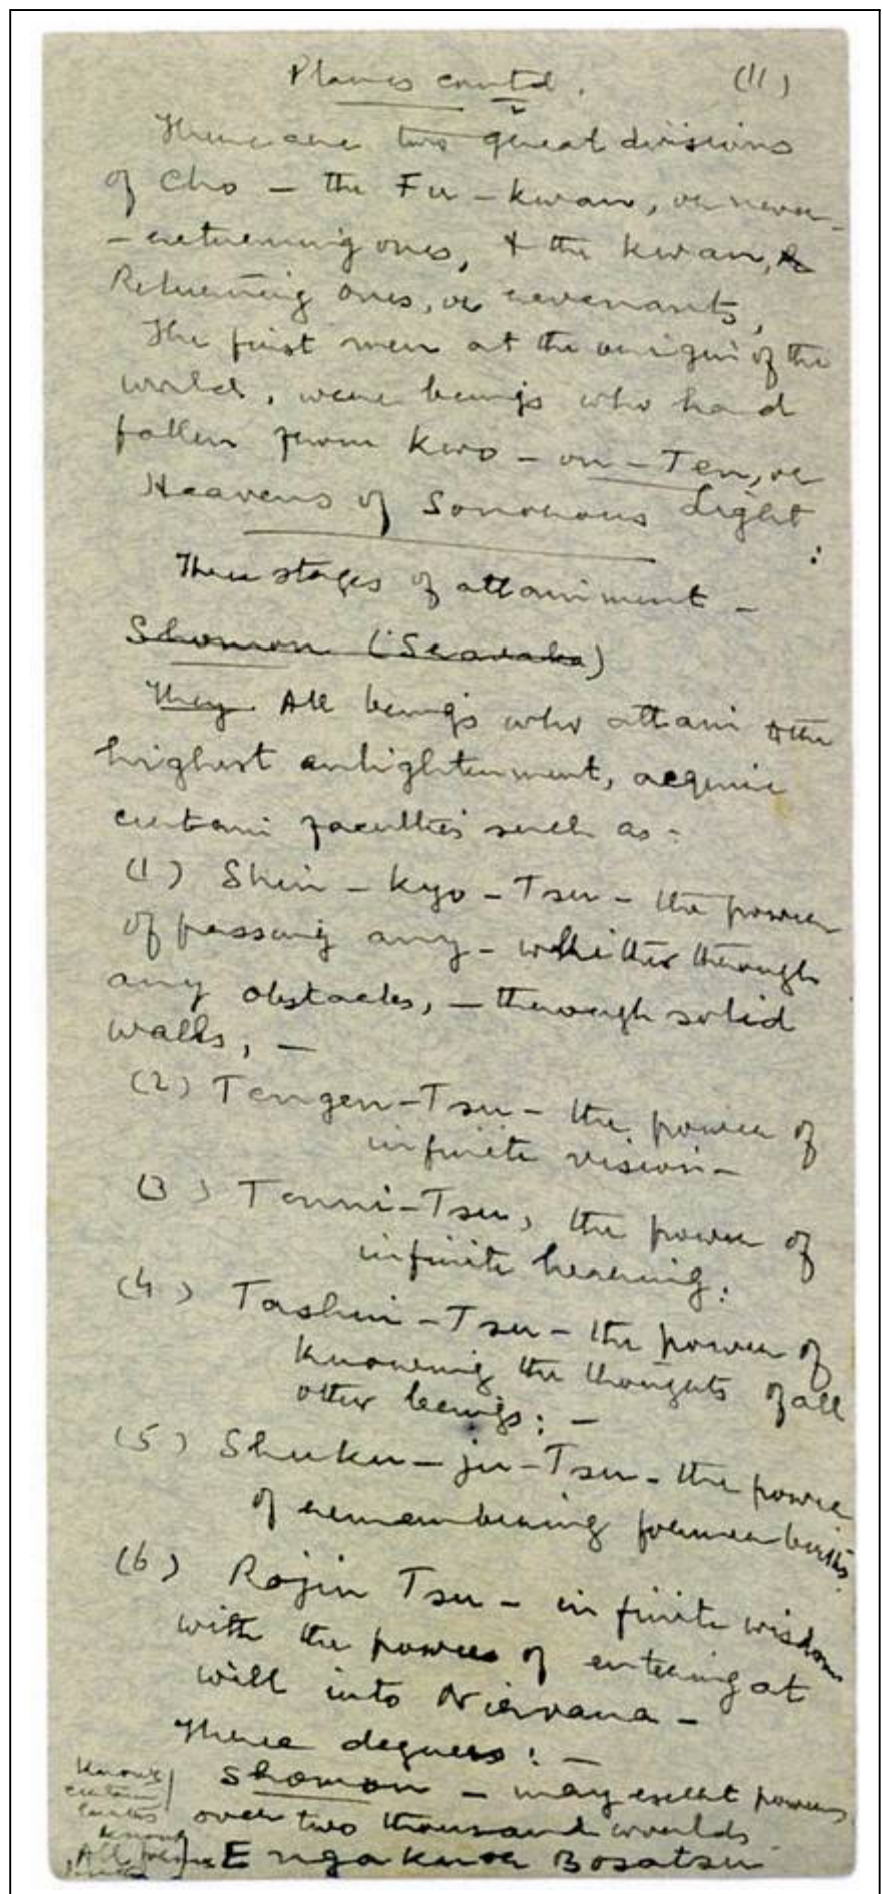 Planes contd. (11)
There are two great divisions
of Cho – the Fu-kwan, or never-
-returning ones, & the Kwan,
Returning ones, or revenants,
The first men at the origin of the
world, were beings who had
fallen from Kwo-on-Ten, or
Heavens of Sonorous Light :
Three stages of attainment –
Shomon (Sravaka)
They All beings who attain the
highest enlightenment, acquire
certain faculties such as :
(1) Shin-kyo-Tsu – the power
of passing any – whither through
any obstacles, – through solid
walls, –
(2) Tengen-Tsu – the power of
infinite vision –
(3) Tenni-Tsu, the power of
infinite hearing :
(4) Tashin-Tsu – the power of
knowing the thoughts of all
other beings : –
(5) Shuku-ju-Tsu – the power
of remembering former births.
(6) Rojin Tsu – infinite wisdom
with the powers of entering at
will into Nirvana –
Three degrees : –
Shomon – may exert powers
over two thousand worlds
Engaku or Bosatsu
Knows
certain
births
Know
All former